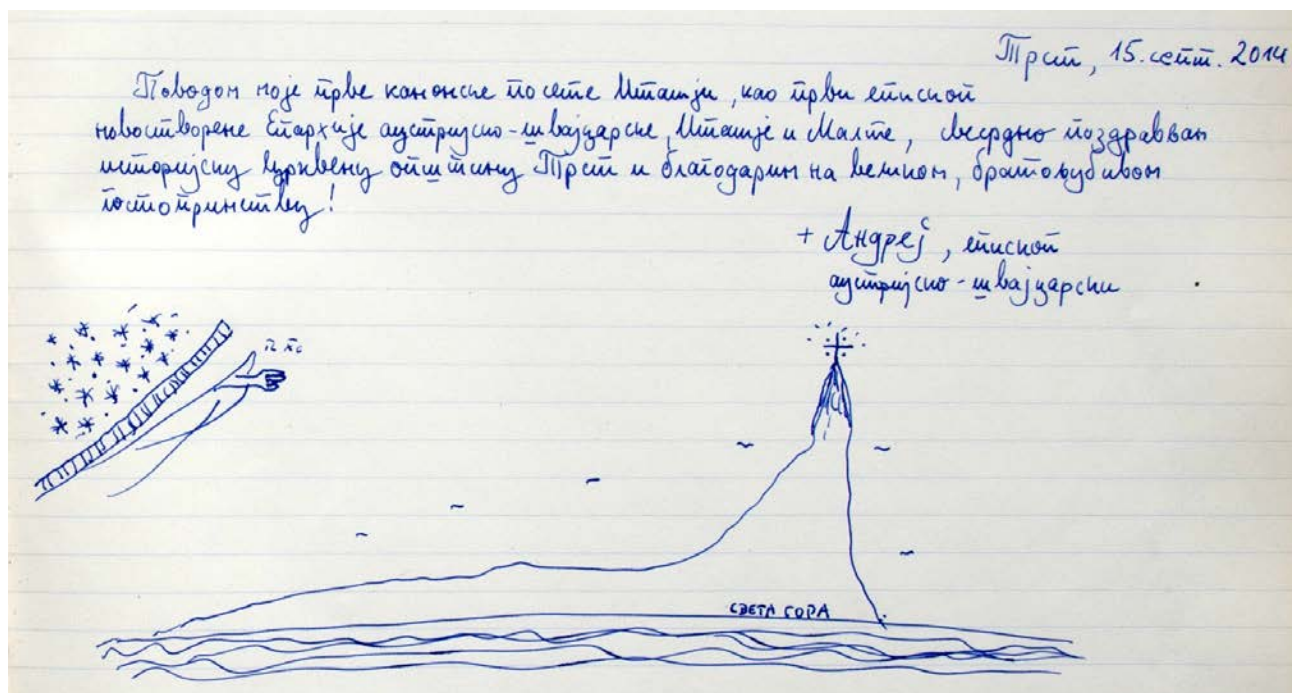 Трст, 15. септ. 2014
Поводом моје прве канонске посете Италији, као први епископ
новостворене Епархије аустријско-швајцарске, Италије и Малте, свесрдно поздрављам
историјску Црквену општину Трст и благодарим на великом, братољубивом
гостопримству!
+ Андреј, епископ
аустријско-швајцарски
СВЕТА ГОРА